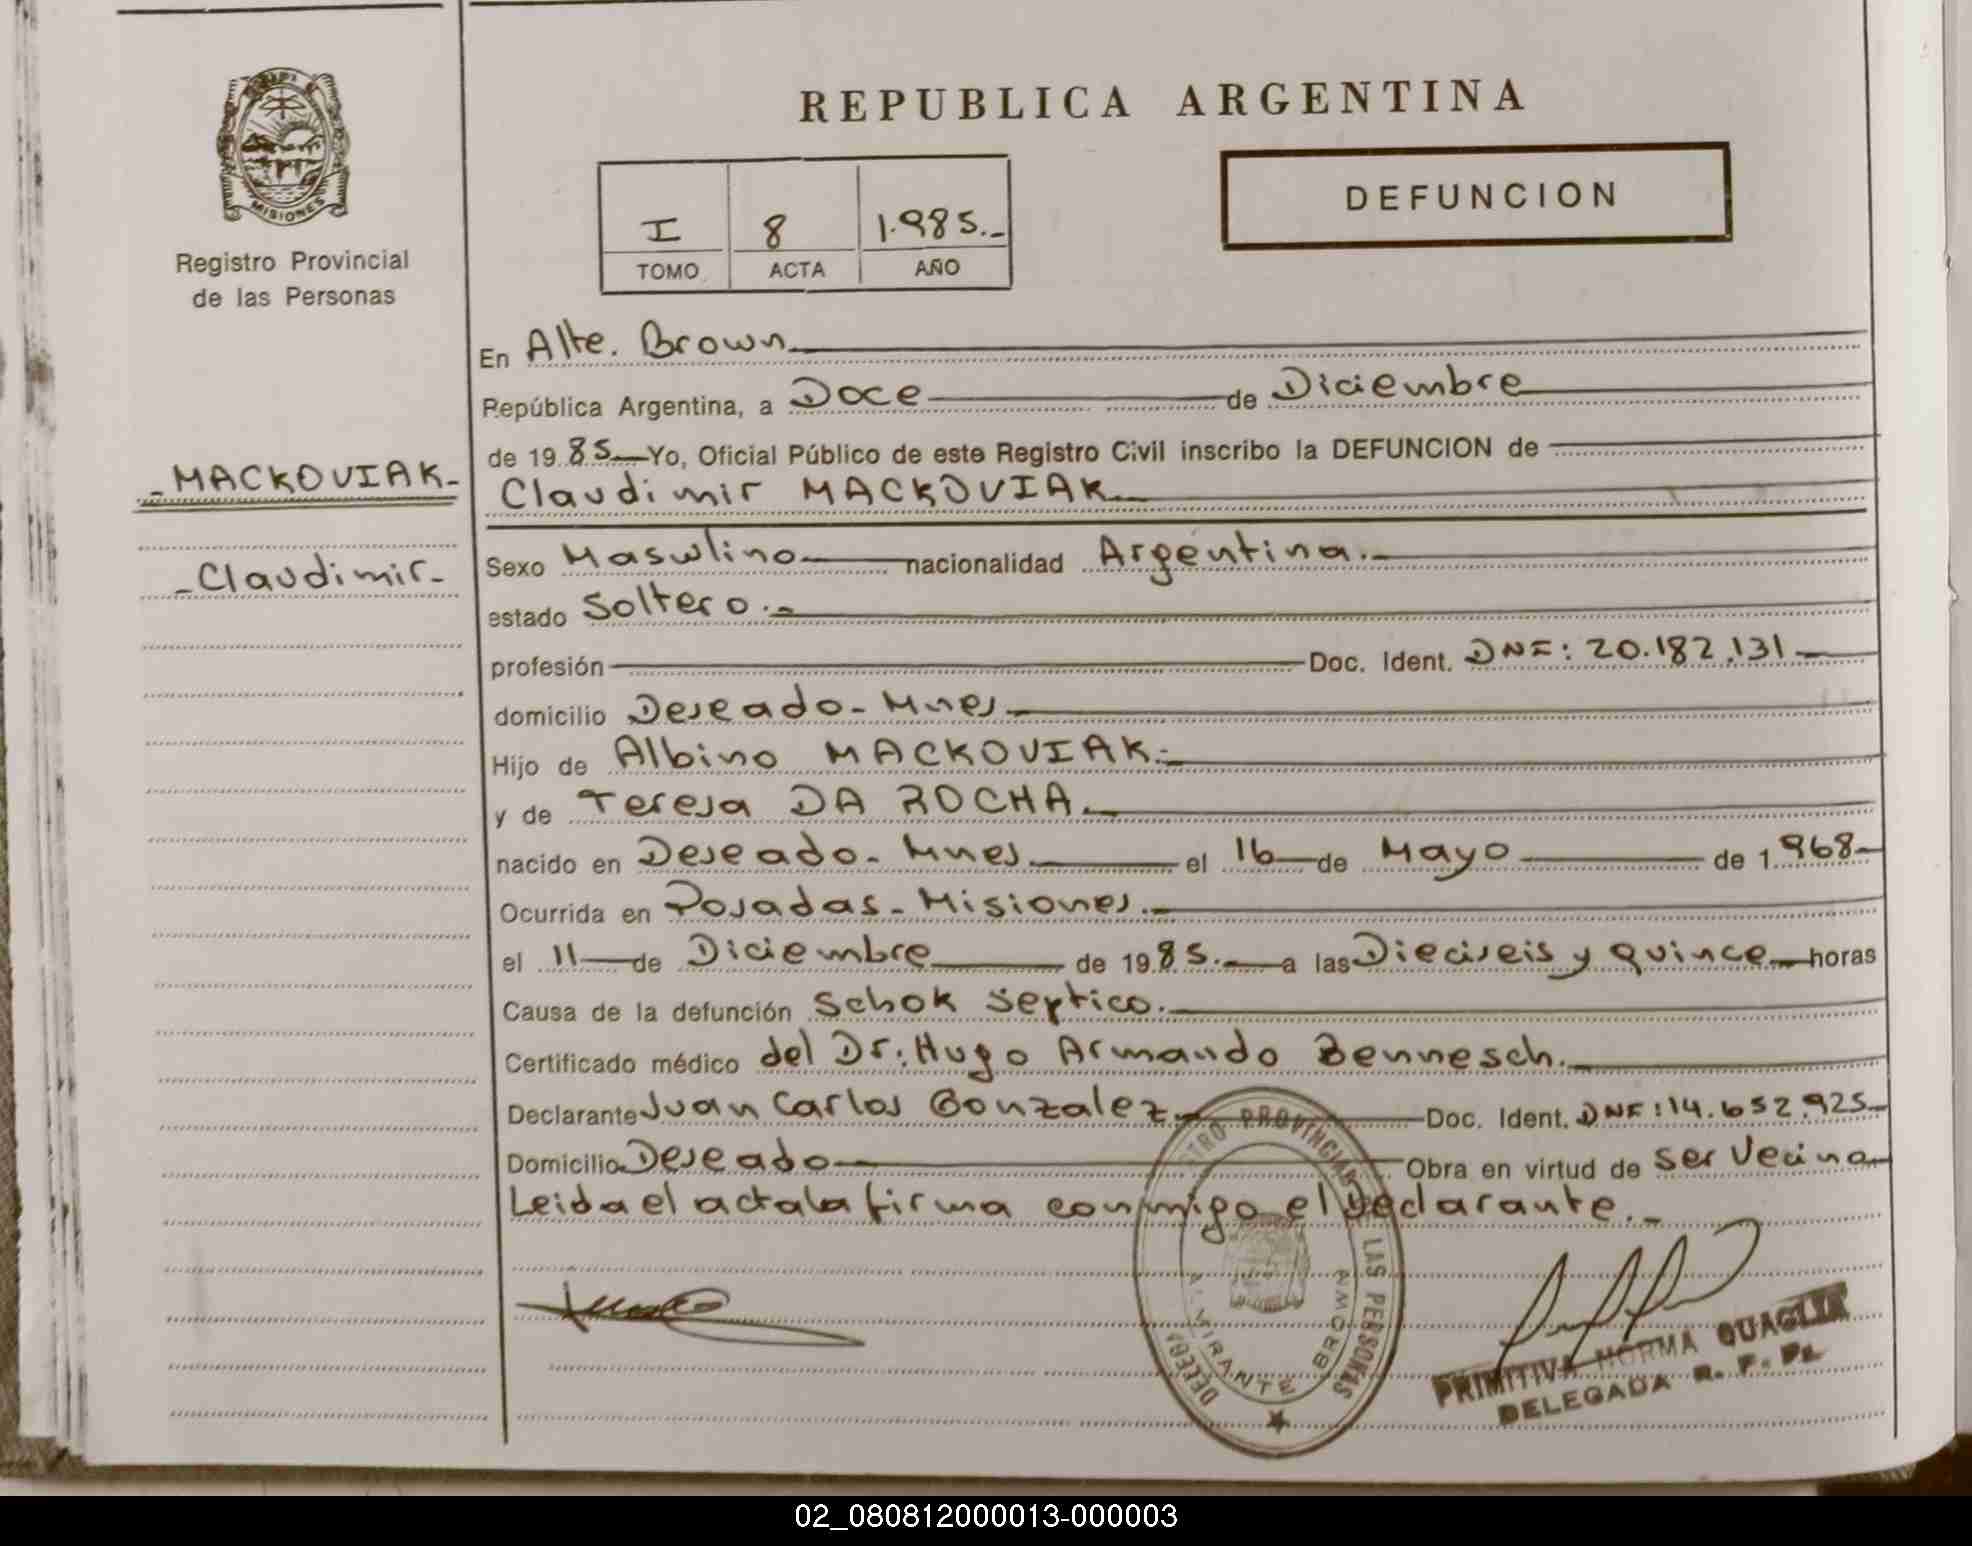 MISIONES
Registro Provincial
de las Personas
REPUBLICA ARGENTINA
DEFUNCION
I 8 1.985.-
TOMO ACTA AÑO
En Alte. Brown
República Argentina, a Doce de Diciembre
de 1985 Yo, Oficial Público de este Registro Civil inscribo la DEFUNCION de
- MACKOVIAK -
Claudimir MACKOVIAK
- Claudimir -
Sexo Masculino nacionalidad Argentina.-
estado Soltero.-
profesión Doc. Ident. DNI: 20.182.131
domicilio Deseado - Mnes
Hijo de Albino MACKOVIAK.-
y de Teresa DA ROCHA.
nacido en Deseado - Mnes el 16 de Mayo de 1.968
Ocurrida en Posadas - Misiones.-
el 11 de Diciembre de 1985.- a las Dieciseis y quince horas
Causa de la defunción Schok septico.
Certificado médico del Dr: Hugo Armando Bennesch.
Declarante Juan Carlos Gonzalez Doc. Ident. DNI: 14.652.925
Domicilio Deseado Obra en virtud de ser Vecino
Leida el acta la firma conmigo el Declarante.-
PROVINCIAL LAS PERSONAS
ALMIRANTE BROWN
PRIMITIVA NORMA QUAGLIA
DELEGADA R. P. P.
02_080812000013-000003